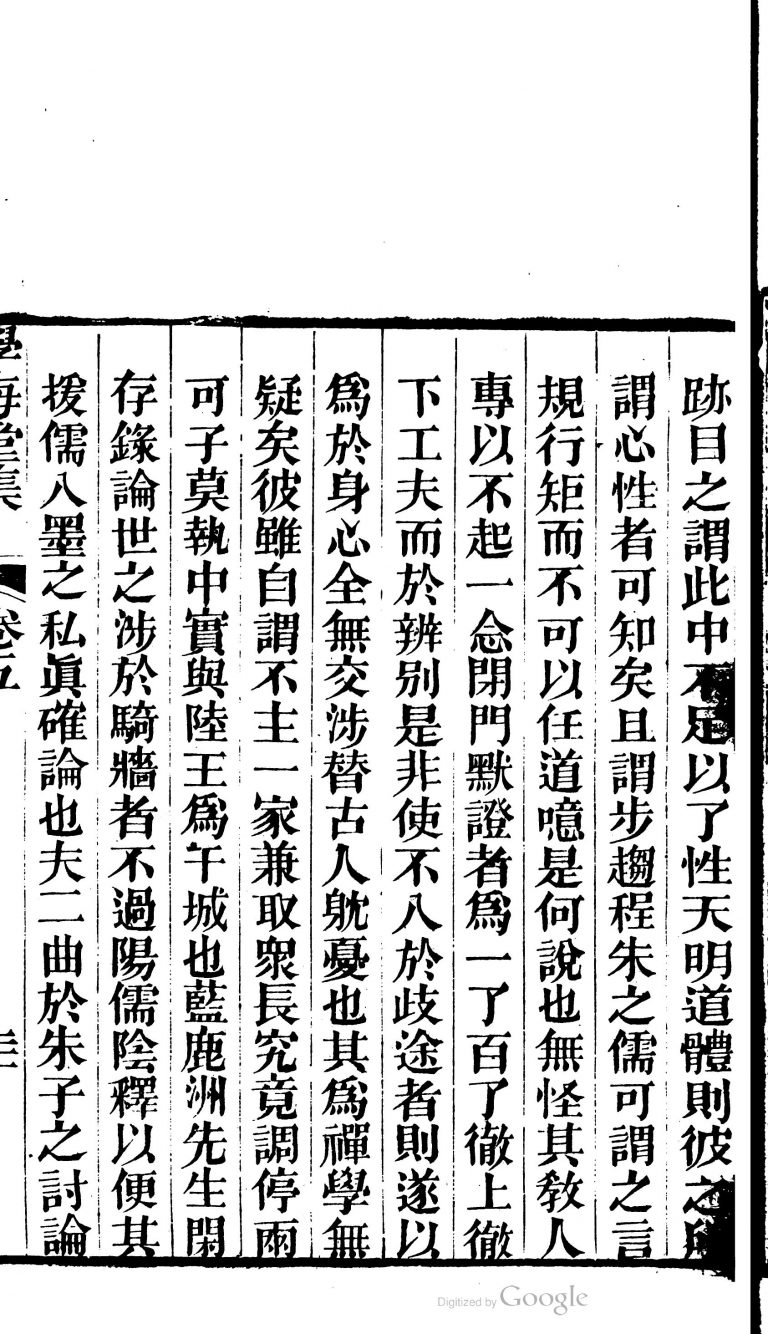 跡目之謂此中不足以了性天明道體則彼之所
謂心性者可知矣且謂步趨程朱之儒可謂之言
規行矩而不可以任道噫是何說也無怪其敎人
專以不起一念閉門默證者爲一了百了徹上徹
下工夫而於辨别是非使不入於歧途者則遂以
爲於身心全無交涉替古人躭憂也其爲禪學無
疑矣彼雖自謂不主一家兼取衆長究竟調停兩
可子莫執中實與陸王爲干城也藍鹿洲先生閑
存錄論世之涉於騎牆者不過陽儒陰釋以便其
援儒入墨之私眞確論也夫二曲於朱子之討論
學海堂集 卷五
Digitized by Google